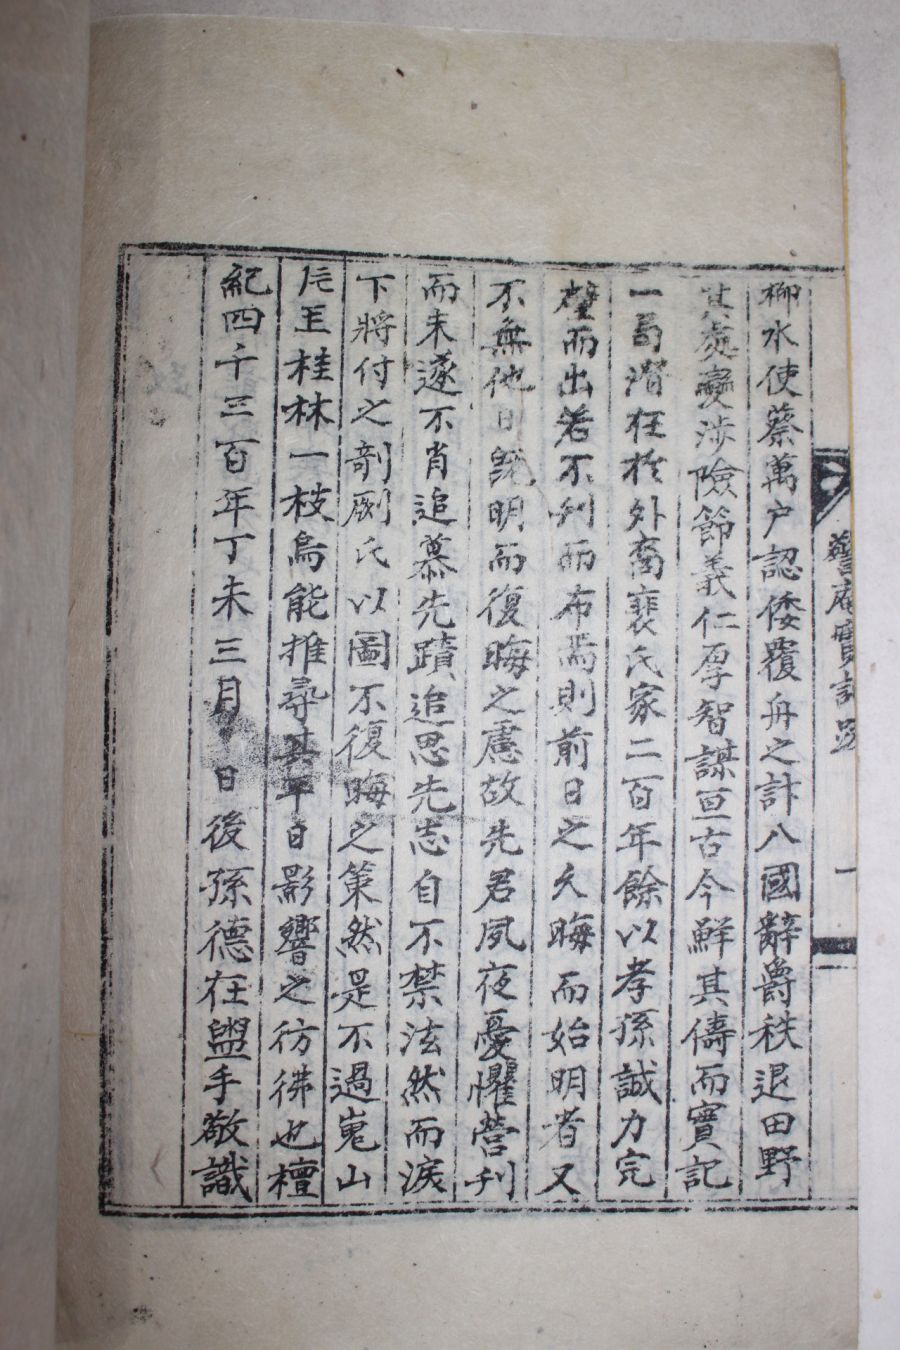 柳水使蔡萬戶認倭覆舟之計八國辭爵秩退田野
其處變涉險節義仁厚智謀亘古今鮮其儔而實記
一局潛在於外裔裵氏家二百年餘以孝孫誠力完
璧而出若不刊而布焉則前日之久晦而始明者又
不無他日旣明而復晦之慮故先君夙夜憂懼營刊
而未遂不肖追慕先蹟追思先志自不禁泫然而淚
下將付之剞劂氏以圖不復晦之策然是不過崑山
片玉桂林一枝烏能推尋其平日影響之彷彿也檀
紀四千三百年丁未三月 日後孫德在盥手敬識
警庵實記跋
一